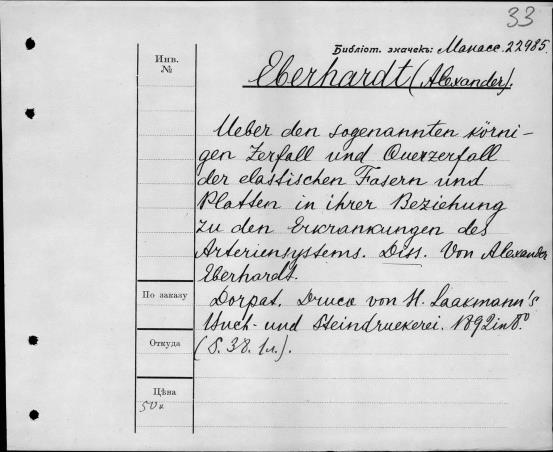 33
Библіот. значекъ: Манасс. 22985.
Инв.
№
Eberhardt (Alexander).
Ueber den sogenannten körni-
gen Zerfall und Querzerfall
der elastischen Fasern und
Platten in ihrer Beziehung
zu den Erkrankungen des
Arteriensystems. Diss. Von Alexander
Eberhardt.
По заказу
Dorpat. Druck von H. Laakmann's
Buch- und Steindruckerei. 1892 in 8.º
Откуда
(S. 38. 1 л.).
Цѣна
50 к